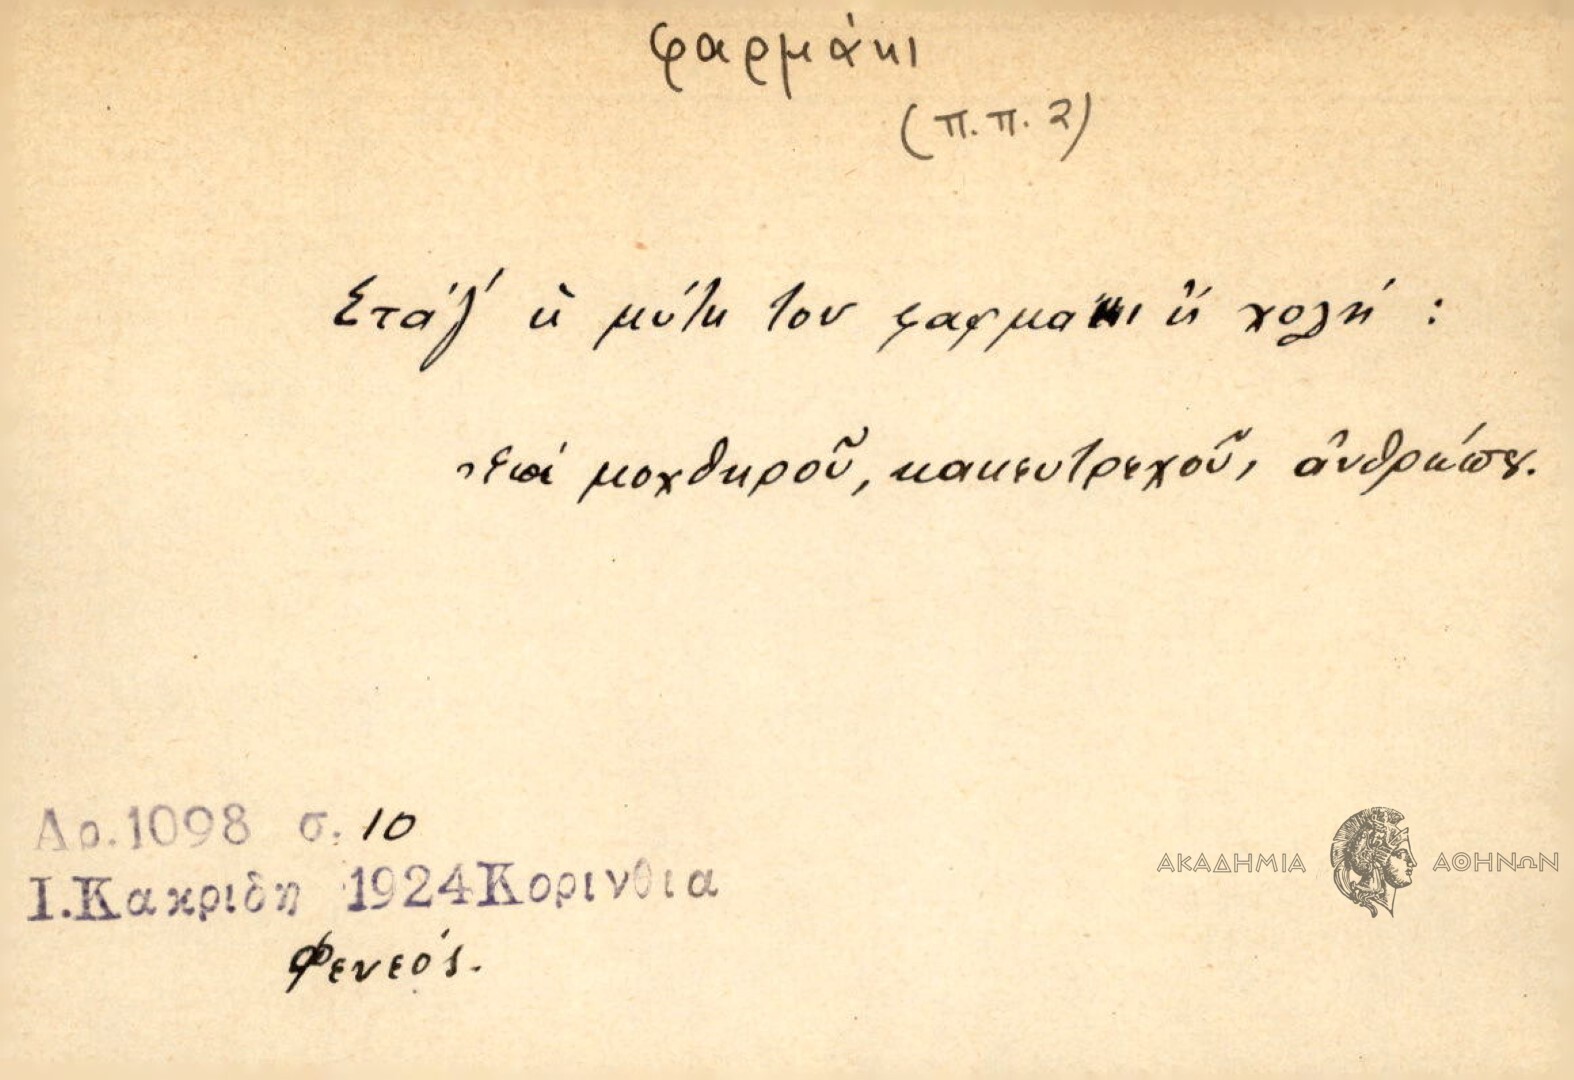 φαρμάκι
(π.π. 2)
Στάζ' ἡ μύτη του φαρμάκι ἢ χολή :
ἐπὶ μοχθηροῦ, κακεντρεχοῦς ἀνθρώπου.
Αρ.1098 σ. 10
Ι.Κακριδη 1924 Κορινθια
Φενεός.
ΑΚΑΔΗΜΙΑ ΑΘΗΝΩΝ